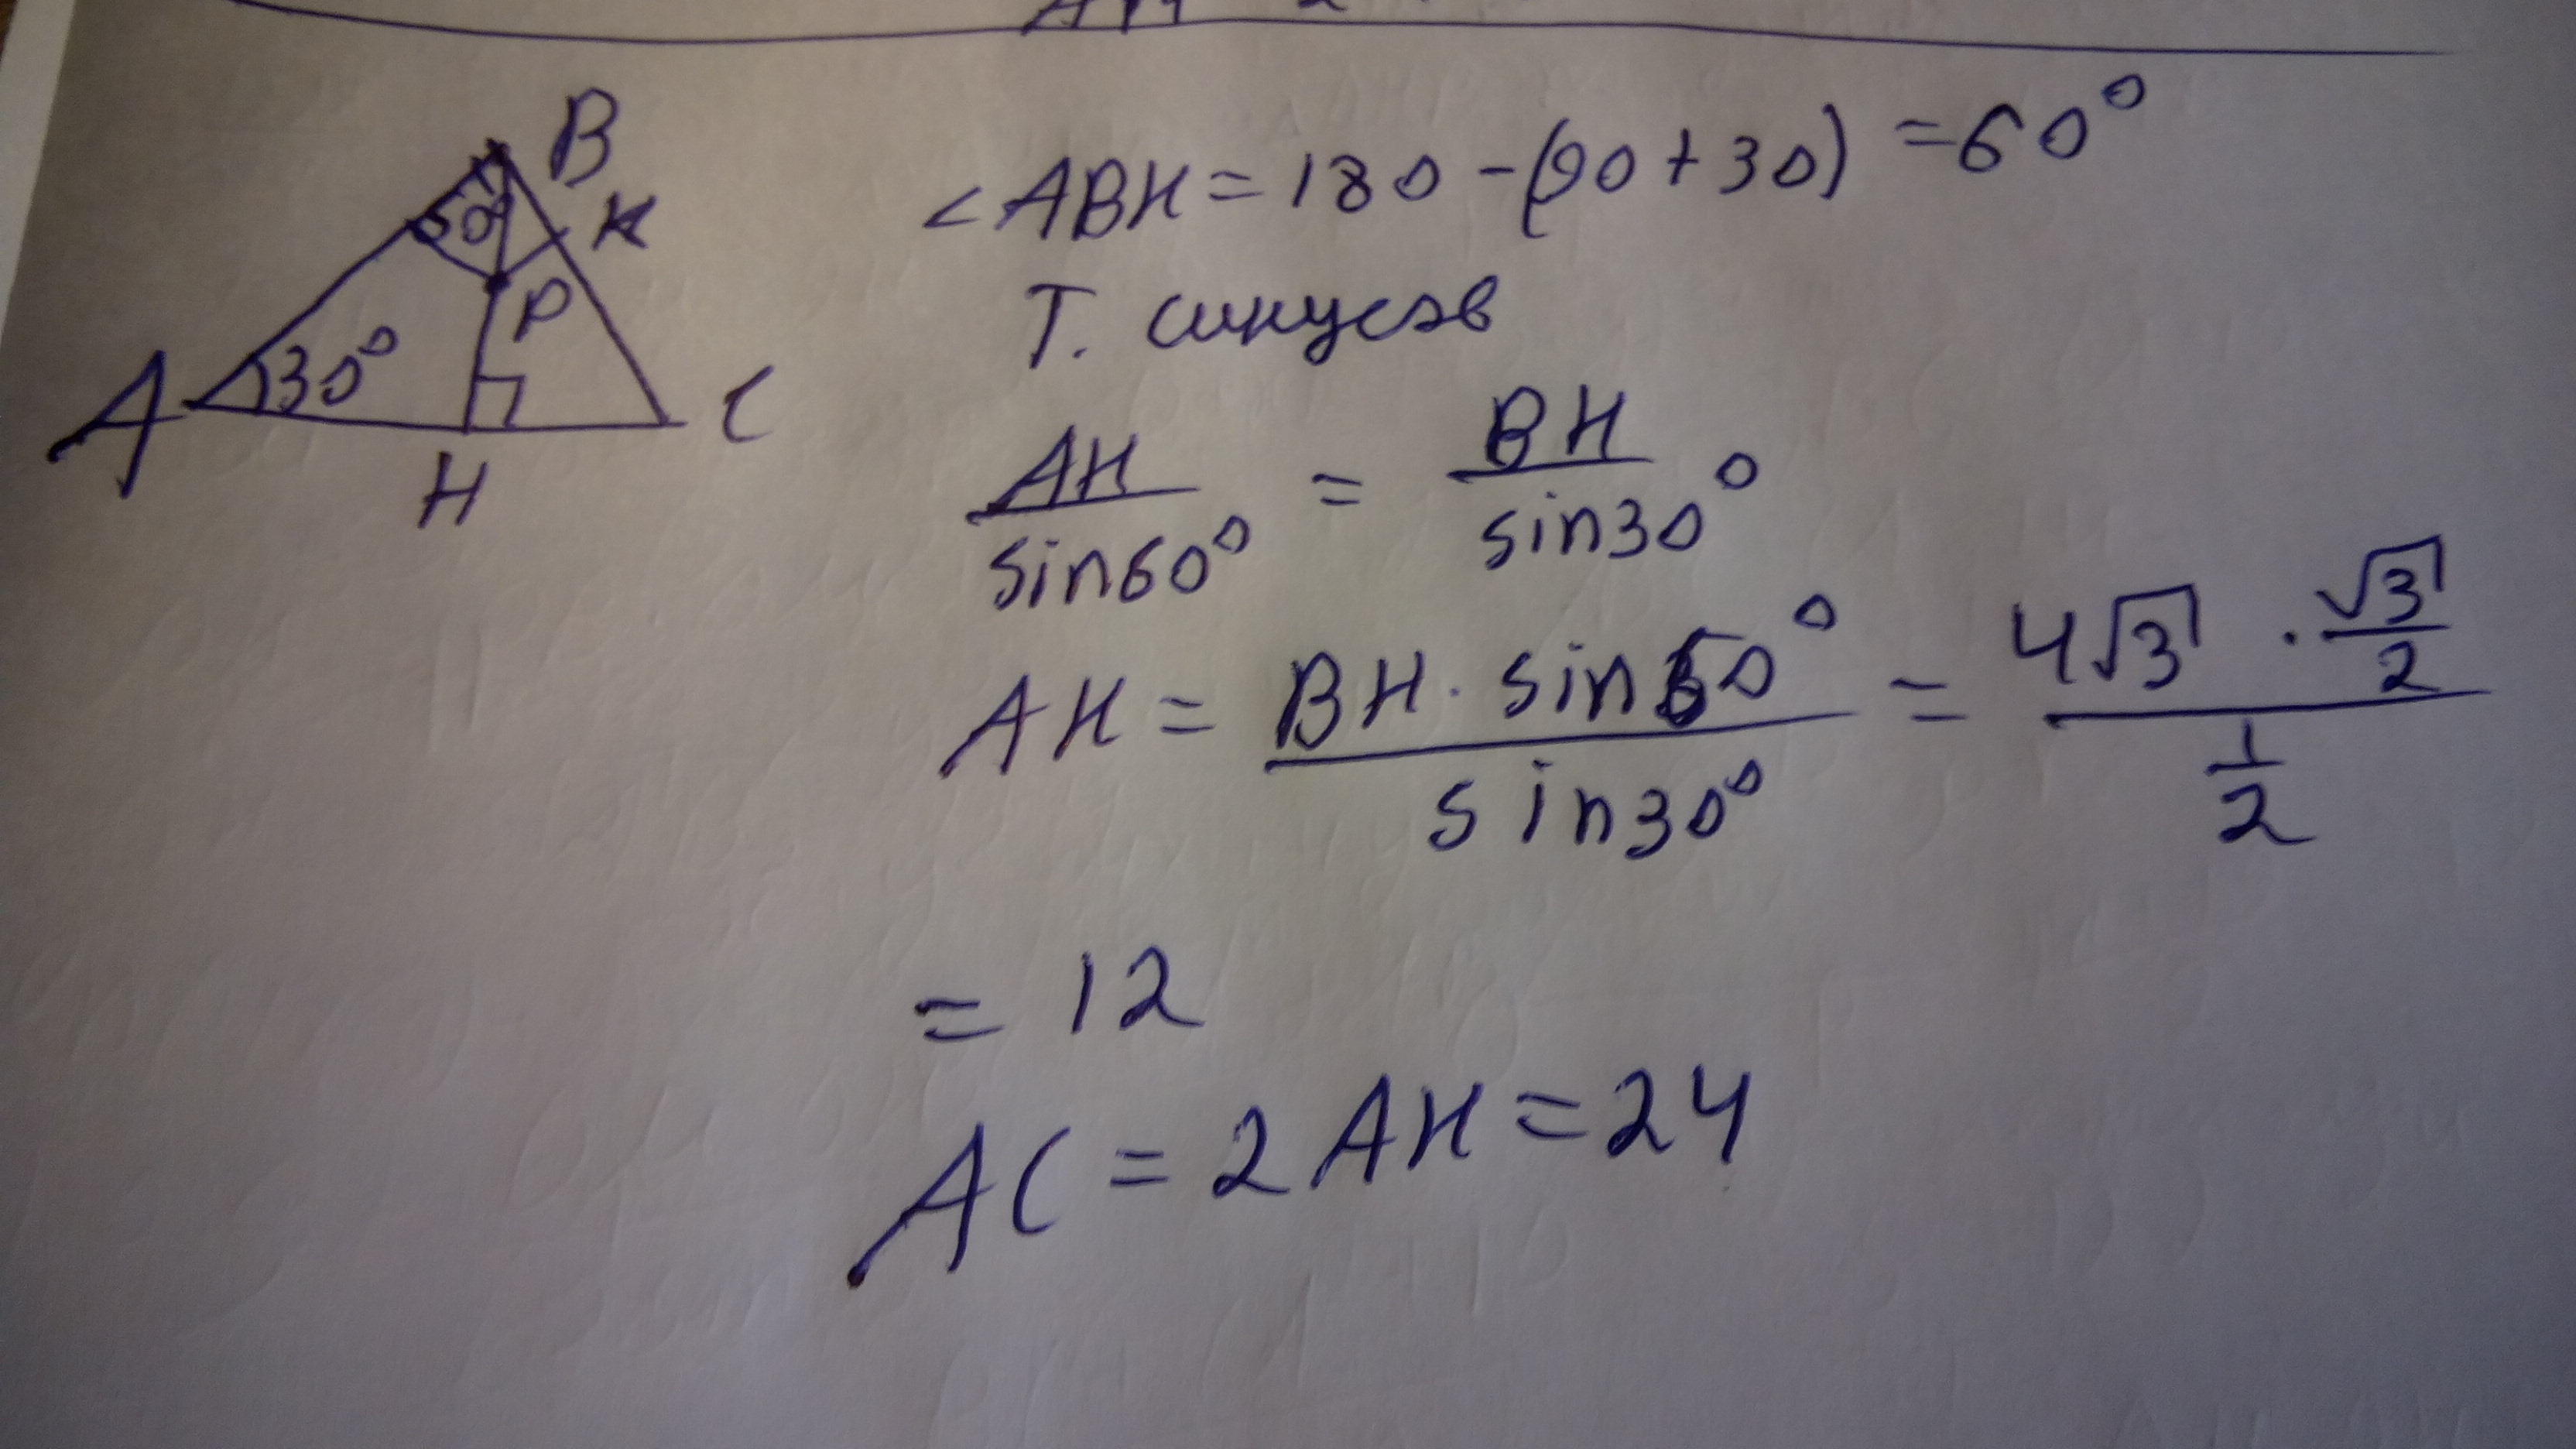 B
K
60°
P
30°
A
C
H
<ABH = 180 - (90 + 30) = 60°
Т. синусов
AH/sin60° = BH/sin30°
AH = BH · sin60°/sin30° = 4√3 · √3/2 / 1/2
= 12
AC = 2AH = 24